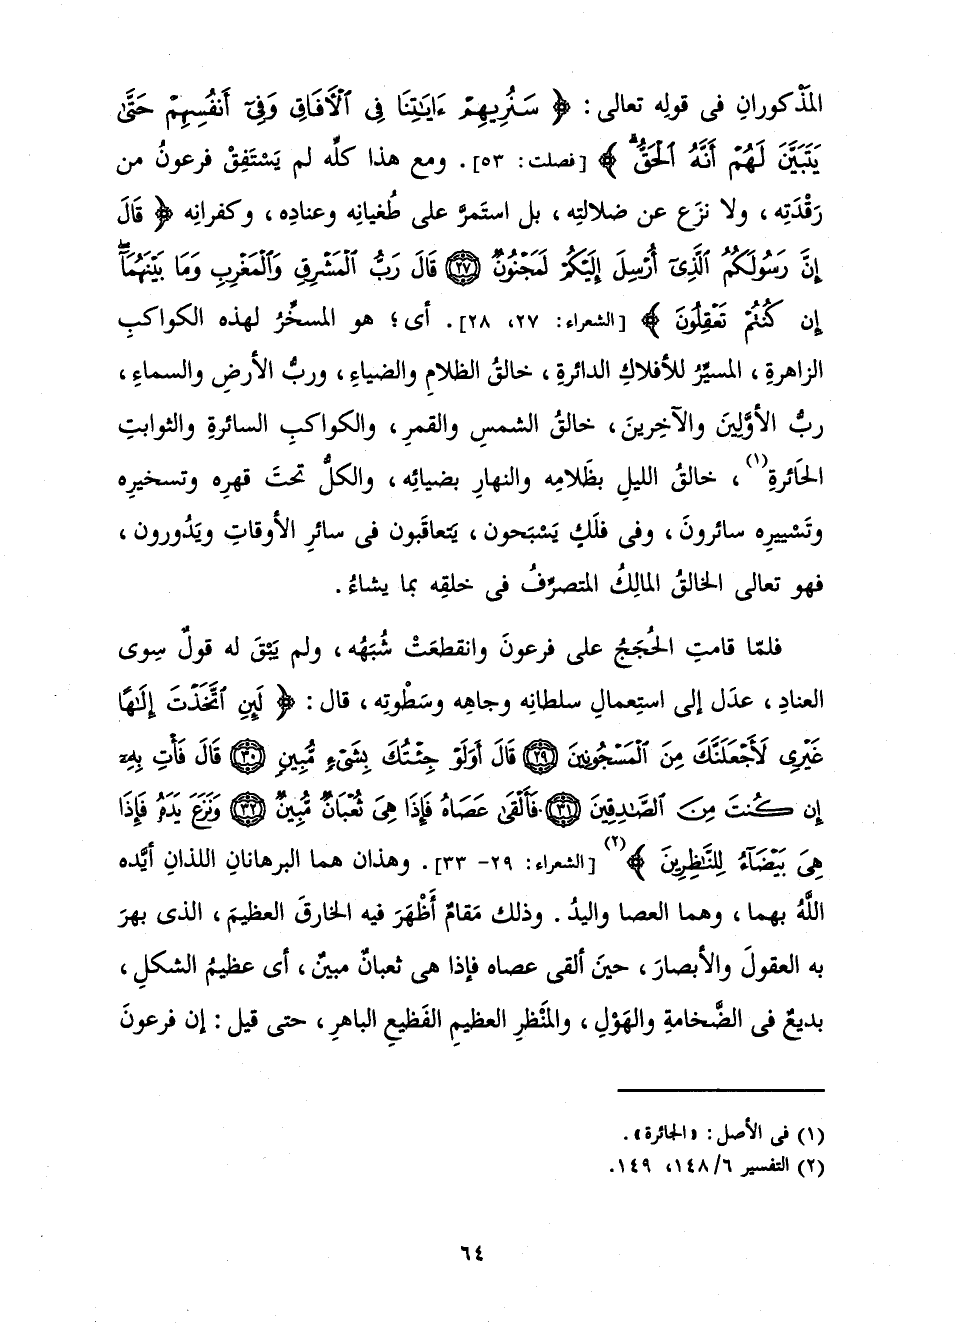 المَذْكورانِ فى قولِه تعالى: ﴿ سَنُرِيهِمْ ءَايَـٰتِنَا فِى ٱلْأَفَاقِ وَفِىٓ أَنفُسِهِمْ حَتَّىٰ
يَتَبَيَّنَ لَهُمْ أَنَّهُ ٱلْحَقُّ ﴾ [فصلت: ٥٣]. ومع هذا كلِّه لم يَسْتَفِقْ فرعونُ من
رَقْدَتِه، ولا نزَع عن ضلالتِه، بل استَمرَّ على طُغيانِه وعنادِه، وكفرانِه ﴿ قَالَ
إِنَّ رَسُولَكُمُ ٱلَّذِىٓ أُرْسِلَ إِلَيْكُمْ لَمَجْنُونٌ ٢٧ قَالَ رَبُّ ٱلْمَشْرِقِ وَٱلْمَغْرِبِ وَمَا بَيْنَهُمَآ
إِن كُنتُمْ تَعْقِلُونَ ﴾ [الشعراء: ٢٧، ٢٨]. أى؛ هو المسخِّرُ لهذه الكواكبِ
الزاهرةِ، المسيِّرُ للأفلاكِ الدائرةِ، خالقُ الظلامِ والضياءِ، وربُّ الأرضِ والسماءِ،
ربُّ الأوَّلِينَ والآخِرينَ، خالقُ الشمسِ والقمرِ، والكواكبِ السائرةِ والثوابتِ
الحَائرةِ(١)، خالقُ الليلِ بظَلامِه والنهارِ بضيائِه، والكلُّ تحتَ قهرِه وتسخيرِه
وتَسْييرِه سائرونَ، وفى فلَكٍ يَسْبَحون، يَتعاقَبون فى سائرِ الأوقاتِ ويَدُورون،
فهو تعالى الخالقُ المالِكُ المتصرِّفُ فى خلقِه بما يشاءُ.
فلمّا قامتِ الحُجَجُ على فرعونَ وانقطعَتْ شُبَهُه، ولم يَبْقَ له قولٌ سِوى
العنادِ، عدَل إلى استِعمالِ سلطانِه وجاهِه وسَطْوتِه، قال: ﴿ لَئِنِ ٱتَّخَذْتَ إِلَـٰهًا
غَيْرِى لَأَجْعَلَنَّكَ مِنَ ٱلْمَسْجُونِينَ ٢٩ قَالَ أَوَلَوْ جِئْتُكَ بِشَىْءٍ مُّبِينٍ ٣٠ قَالَ فَأْتِ بِهِۦٓ
إِن كُنتَ مِنَ ٱلصَّـٰدِقِينَ ٣١ فَأَلْقَىٰ عَصَاهُ فَإِذَا هِىَ ثُعْبَانٌ مُّبِينٌ ٣٢ وَنَزَعَ يَدَهُۥ فَإِذَا
هِىَ بَيْضَآءُ لِلنَّـٰظِرِينَ ﴾(٢) [الشعراء: ٢٩- ٣٣]. وهذان هما البرهانانِ اللذانِ أيَّده
اللَّهُ بهما، وهما العصا واليدُ. وذلك مَقامٌ أَظْهَرَ فيه الخارقَ العظيمَ، الذى بهرَ
به العقولَ والأبصارَ، حينَ ألقى عصاه فإذا هى ثعبانٌ مبينٌ، أى عظيمُ الشكلِ،
بديعٌ فى الضَّخامةِ والهَوْلِ، والمَنْظرِ العظيمِ الفَظيعِ الباهرِ، حتى قيل: إن فرعونَ
(١) فى الأصل: «الجائرة».
(٢) التفسير ٦/ ١٤٨، ١٤٩.
٦٤